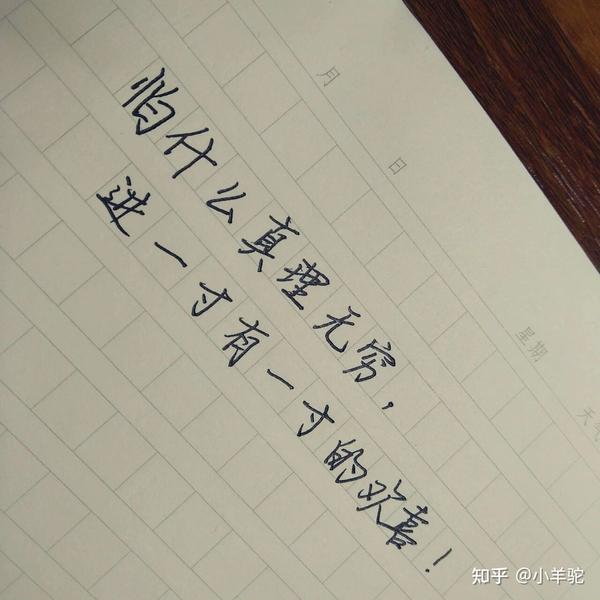 月 日 星期 天气
怕什么真理无穷，
进一寸有一寸的欢喜！
知乎 @小羊驼